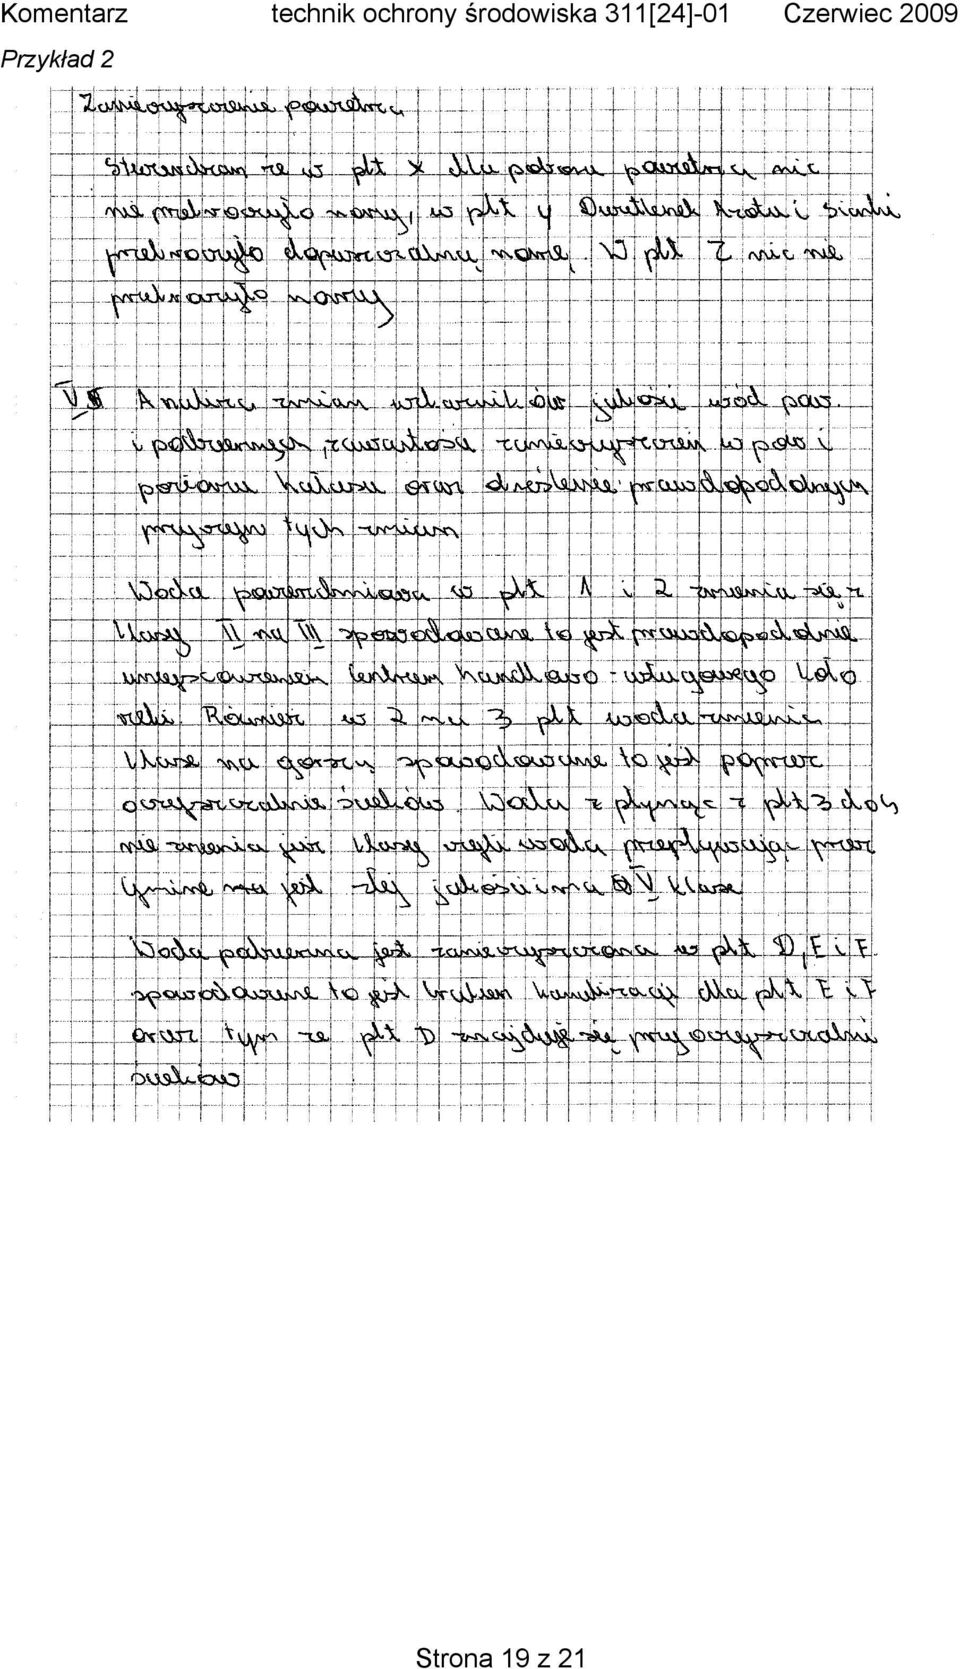 Komentarz technik ochrony środowiska 311[24]-01 Czerwiec 2009
Przykład 2
Zanieczyszczenie powietrza
Stwierdzam że w pkt X dla poboru powietrza nic
nie przekroczyło normy, w pkt y Dwutlenek Azotu i Siarki
przekroczyło dopuszczalną normę. W pkt Z nic nie
przekroczyło normy
V Analiza zmian wskaźników jakości wód pow.
i podziemnych, zawartości zanieczyszczeń w pow i
poziomu hałasu oraz określenie prawdopodobnych
przyczyn tych zmian
Woda powierzchniowa w pkt 1 i 2 zmienia się z
klasy II na III spowodowane to jest prawdopodobnie
umiejscowieniem Centrum handlowo - usługowego koło
rzeki. Również w 2 na 3 pkt woda zmienia
klase na gorszą spowodowane to jest poprzez
oczyszczalnie ścieków. Woda z płynąc z pkt 3 do 4
nie zmienia już klasy czyli woda przepływając przez
Gmine jest złej jakości i ma V klase
Woda podziemna jest zanieczyszczona w pkt D, E i F
spowodowane to jest brakiem kanalizacji dla pkt E i F
oraz tym że pkt D znajduje się przy oczyszczalni
ścieków
Strona 19 z 21